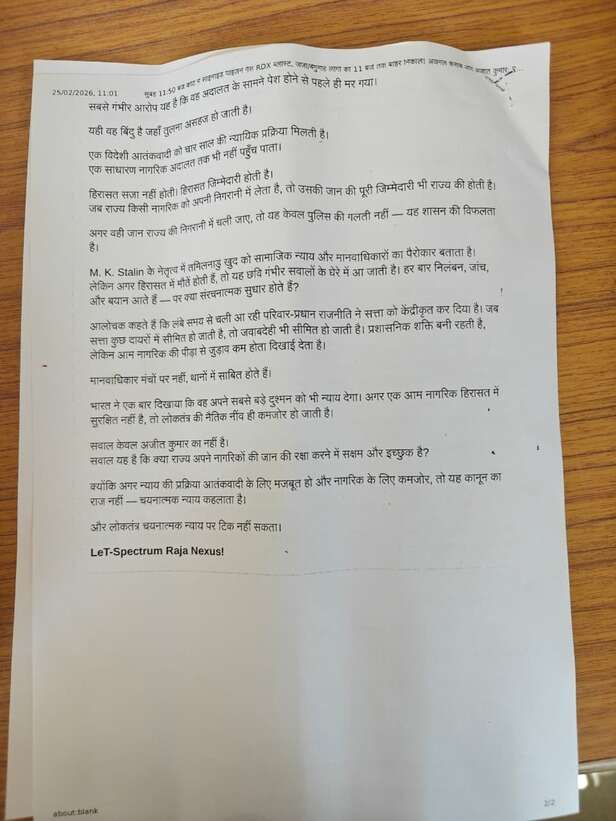 25/02/2026, 11:01
सुबह 11:50 बजे RDX ब्लास्ट, का 11 बजे तक बाहर निकालें। अजमल कसाब अजीत कुमार:
सबसे गंभीर आरोप यह है कि वह अदालत के सामने पेश होने से पहले ही मर गया।
यही वह बिंदु है जहाँ तुलना असहज हो जाती है।
एक विदेशी आतंकवादी को चार साल की न्यायिक प्रक्रिया मिलती है।
एक साधारण नागरिक अदालत तक भी नहीं पहुँच पाता।
हिरासत सजा नहीं होती। हिरासत जिम्मेदारी होती है।
जब राज्य किसी नागरिक को अपनी निगरानी में लेता है, तो उसकी जान की पूरी जिम्मेदारी भी राज्य की होती है।
अगर वही जान राज्य की निगरानी में चली जाए, तो यह केवल पुलिस की गलती नहीं — यह शासन की विफलता
है।
M. K. Stalin के नेतृत्व में तमिलनाडु खुद को सामाजिक न्याय और मानवाधिकारों का पैरोकार बताता है।
लेकिन अगर हिरासत में मौतें होती हैं, तो यह छवि गंभीर सवालों के घेरे में आ जाती है। हर बार निलंबन, जांच,
और बयान आते हैं — पर क्या संरचनात्मक सुधार होते हैं?
आलोचक कहते हैं कि लंबे समय से चली आ रही परिवार-प्रधान राजनीति ने सत्ता को केंद्रीकृत कर दिया है। जब
सत्ता कुछ दायरों में सीमित हो जाती है, तो जवाबदेही भी सीमित हो जाती है। प्रशासनिक शक्ति बनी रहती है,
लेकिन आम नागरिक की पीड़ा से जुड़ाव कम होता दिखाई देता है।
मानवाधिकार मंचों पर नहीं, थानों में साबित होते हैं।
भारत ने एक बार दिखाया कि वह अपने सबसे बड़े दुश्मन को भी न्याय देगा। अगर एक आम नागरिक हिरासत में
सुरक्षित नहीं है, तो लोकतंत्र की नैतिक नींव ही कमजोर हो जाती है।
सवाल केवल अजीत कुमार का नहीं है।
सवाल यह है कि क्या राज्य अपने नागरिकों की जान की रक्षा करने में सक्षम और इच्छुक है?
क्योंकि अगर न्याय की प्रक्रिया आतंकवादी के लिए मजबूत हो और नागरिक के लिए कमजोर, तो यह कानून का
राज नहीं — चयनात्मक न्याय कहलाता है।
और लोकतंत्र चयनात्मक न्याय पर टिक नहीं सकता।
LeT-Spectrum Raja Nexus!
about:blank
2/2